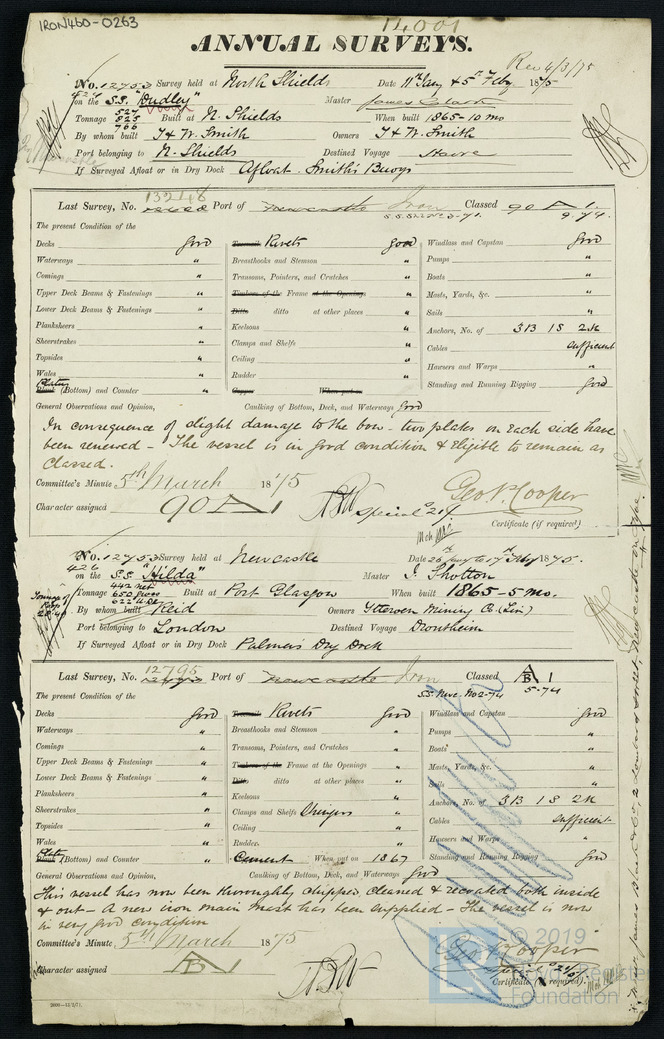 IRON460-0263
14001
ANNUAL SURVEYS.
Rec 4/3/75
No. 12753 Survey held at North Shields Date 11th Jany & 5th Feby 1875
426
on the S.S. "Dudley" Master James Clark
Tonnage 527 825 766 Built at N. Shields When built 1865-10 mo
By whom built T & W. Smith Owners T & W. Smith
Port belonging to N. Shields Destined Voyage
If Surveyed Afloat or in Dry Dock Afloat. Smith's Buoys
Last Survey, No. 13248 Port of Newcastle Iron Classed 90 A 1.
9.74.
The present Condition of the
Decks good Treenails Rivets good Windlass and Capstan good
Waterways " Breasthooks and Stemson " Pumps "
Comings " Transoms, Pointers, and Crutches " Boats "
Upper Deck Beams & Fastenings " Timbers of the Frame at the Openings " Masts, Yards, &c. "
Lower Deck Beams & Fastenings " Ditto ditto at other places " Sails "
Planksheers " Keelsons " Anchors, No. of 3B 1S 2K
Sheerstrakes " Clamps and Shelfs " Cables sufficient
Topsides " Ceiling " Hawsers and Warps "
Wales " Rudder " Standing and Running Rigging good
Plates
Plank (Bottom) and Counter " Copper When put on
General Observations and Opinion, Caulking of Bottom, Deck, and Waterways good
In consequence of slight damage to the bow - two plates on each side have
been renewed - The vessel is in good condition & eligible to remain as
classed.
Committee's Minute 5th March 1875
Geo. P. Cooper
Character assigned 90 A 1
Special
Certificate (if required)
No. 12753 Survey held at Newcastle Date 26th Jany to 17th Feby 1875.
426
on the S.S. "Hilda" Master J. Shotton
Tonnage 442 net 650 gross 622 U.Dk Built at Port Glasgow When built 1865-5 mo.
By whom built Reid Owners Ytteroen Mining Co. (Lim)
Port belonging to London Destined Voyage Drontheim
If Surveyed Afloat or in Dry Dock Palmer's Dry Dock
Last Survey, No. 12795 Port of Newcastle Iron A B 1
S.S. Newc. No 2-74 5-74
The present Condition of the
Decks good Treenails Rivets good Windlass and Capstan good
Waterways " Breasthooks and Stemson " Pumps "
Comings " Transoms, Pointers, and Crutches " Boats "
Upper Deck Beams & Fastenings " Timbers of the Frame at the Openings " Masts, Yards, &c. "
Lower Deck Beams & Fastenings " Ditto ditto at other places " Sails "
Planksheers " Keelsons " Anchors, No. of 3B 1S 2K
Sheerstrakes " Clamps and Shelfs Stringers " Cables sufficient
Topsides " Ceiling " Hawsers and Warps "
Wales " Rudder. " Standing and Running Rigging good
Plates
Plank (Bottom) and Counter " Cement When put on 1867
General Observations and Opinion, Caulking of Bottom, Deck, and Waterways good
This vessel has now been thoroughly chipped, cleaned & recoated both inside
& out - A new iron main mast has been supplied - The vessel is now
in very good condition
Committee's Minute 5th March 1875
Geo. P. Cooper
Character assigned A B 1
Certificate (if required).
© 2019
Lloyd's Register
Foundation